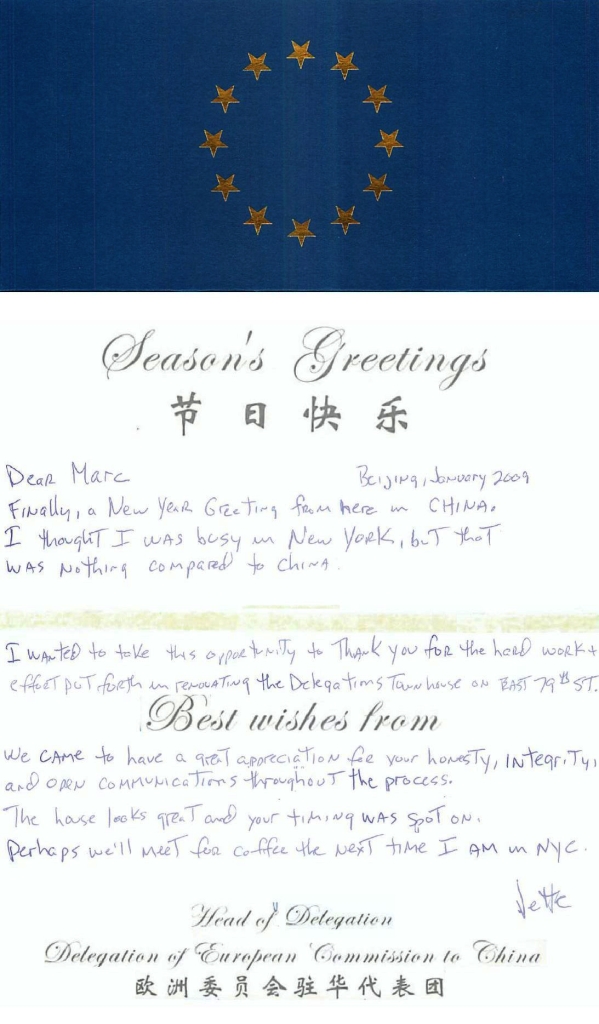 Season's Greetings
节日快乐
Dear Marc
Beijing, January 2009
Finally, a New Year Greeting from here in CHINA.
I thought I was busy in New York, but that
was nothing compared to China.
I wanted to take this opportunity to Thank you for the hard work +
effort put forth in renovating the Delegations Townhouse on EAST 79th ST.
Best wishes from
We came to have a great appreciation for your honesty, integrity,
and open communications throughout the process.
The house looks great and your timing was spot on.
Perhaps we'll meet for coffee the next time I am in NYC.
Head of Delegation
Delegation of European Commission to China
欧洲委员会驻华代表团